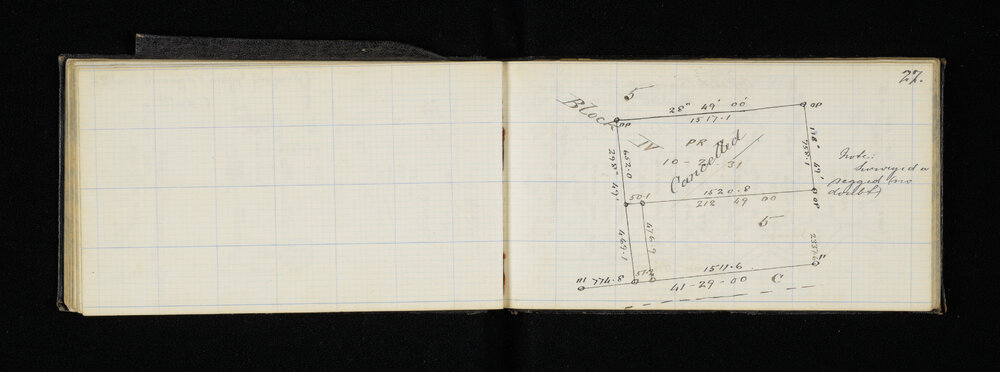 27.
5
Block
IV
28° 49' 00"
1517.1
OP
OP
PR
10-2-31
Cancelled
652.0
298° 49'
118° 49'
758.1
Note:
Surveyed &
pegged (no
doubt)
50.1
1520.8
212 49 00
OP
5
469.1
476.9
111
774.8
51.2
1511.6
41-29-00
C
11